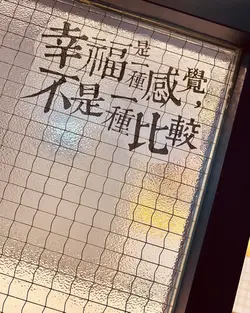 幸福是一種感覺，
不是一種比較